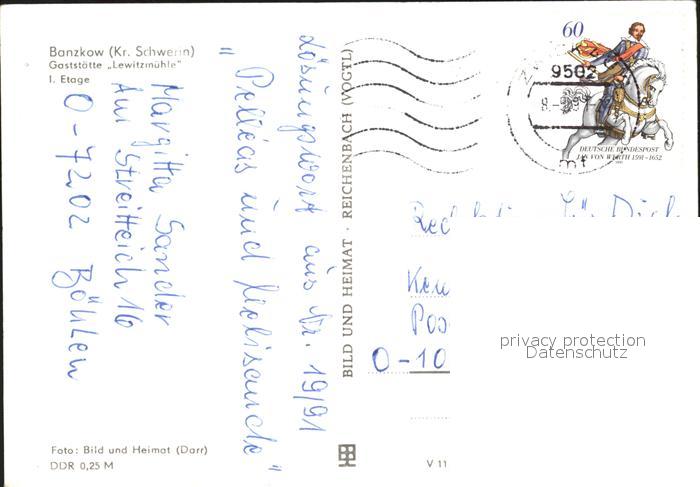 Banzkow (Kr. Schwerin)
Gaststätte „Lewitzmühle"
I. Etage
Margitta Sander
Am Streitteich 16
O-7202 Böhlen
Lösungswort aus Nr. 19/91
"Pelleas und Melisande"
BILD UND HEIMAT · REICHENBACH (VOGTL)
Foto: Bild und Heimat (Darr)
DDR 0,25 M
V 11
60
DEUTSCHE BUNDESPOST
JAN VON WERTH 1591-1652
9502
Pos
O-10
privacy protection
Datenschutz